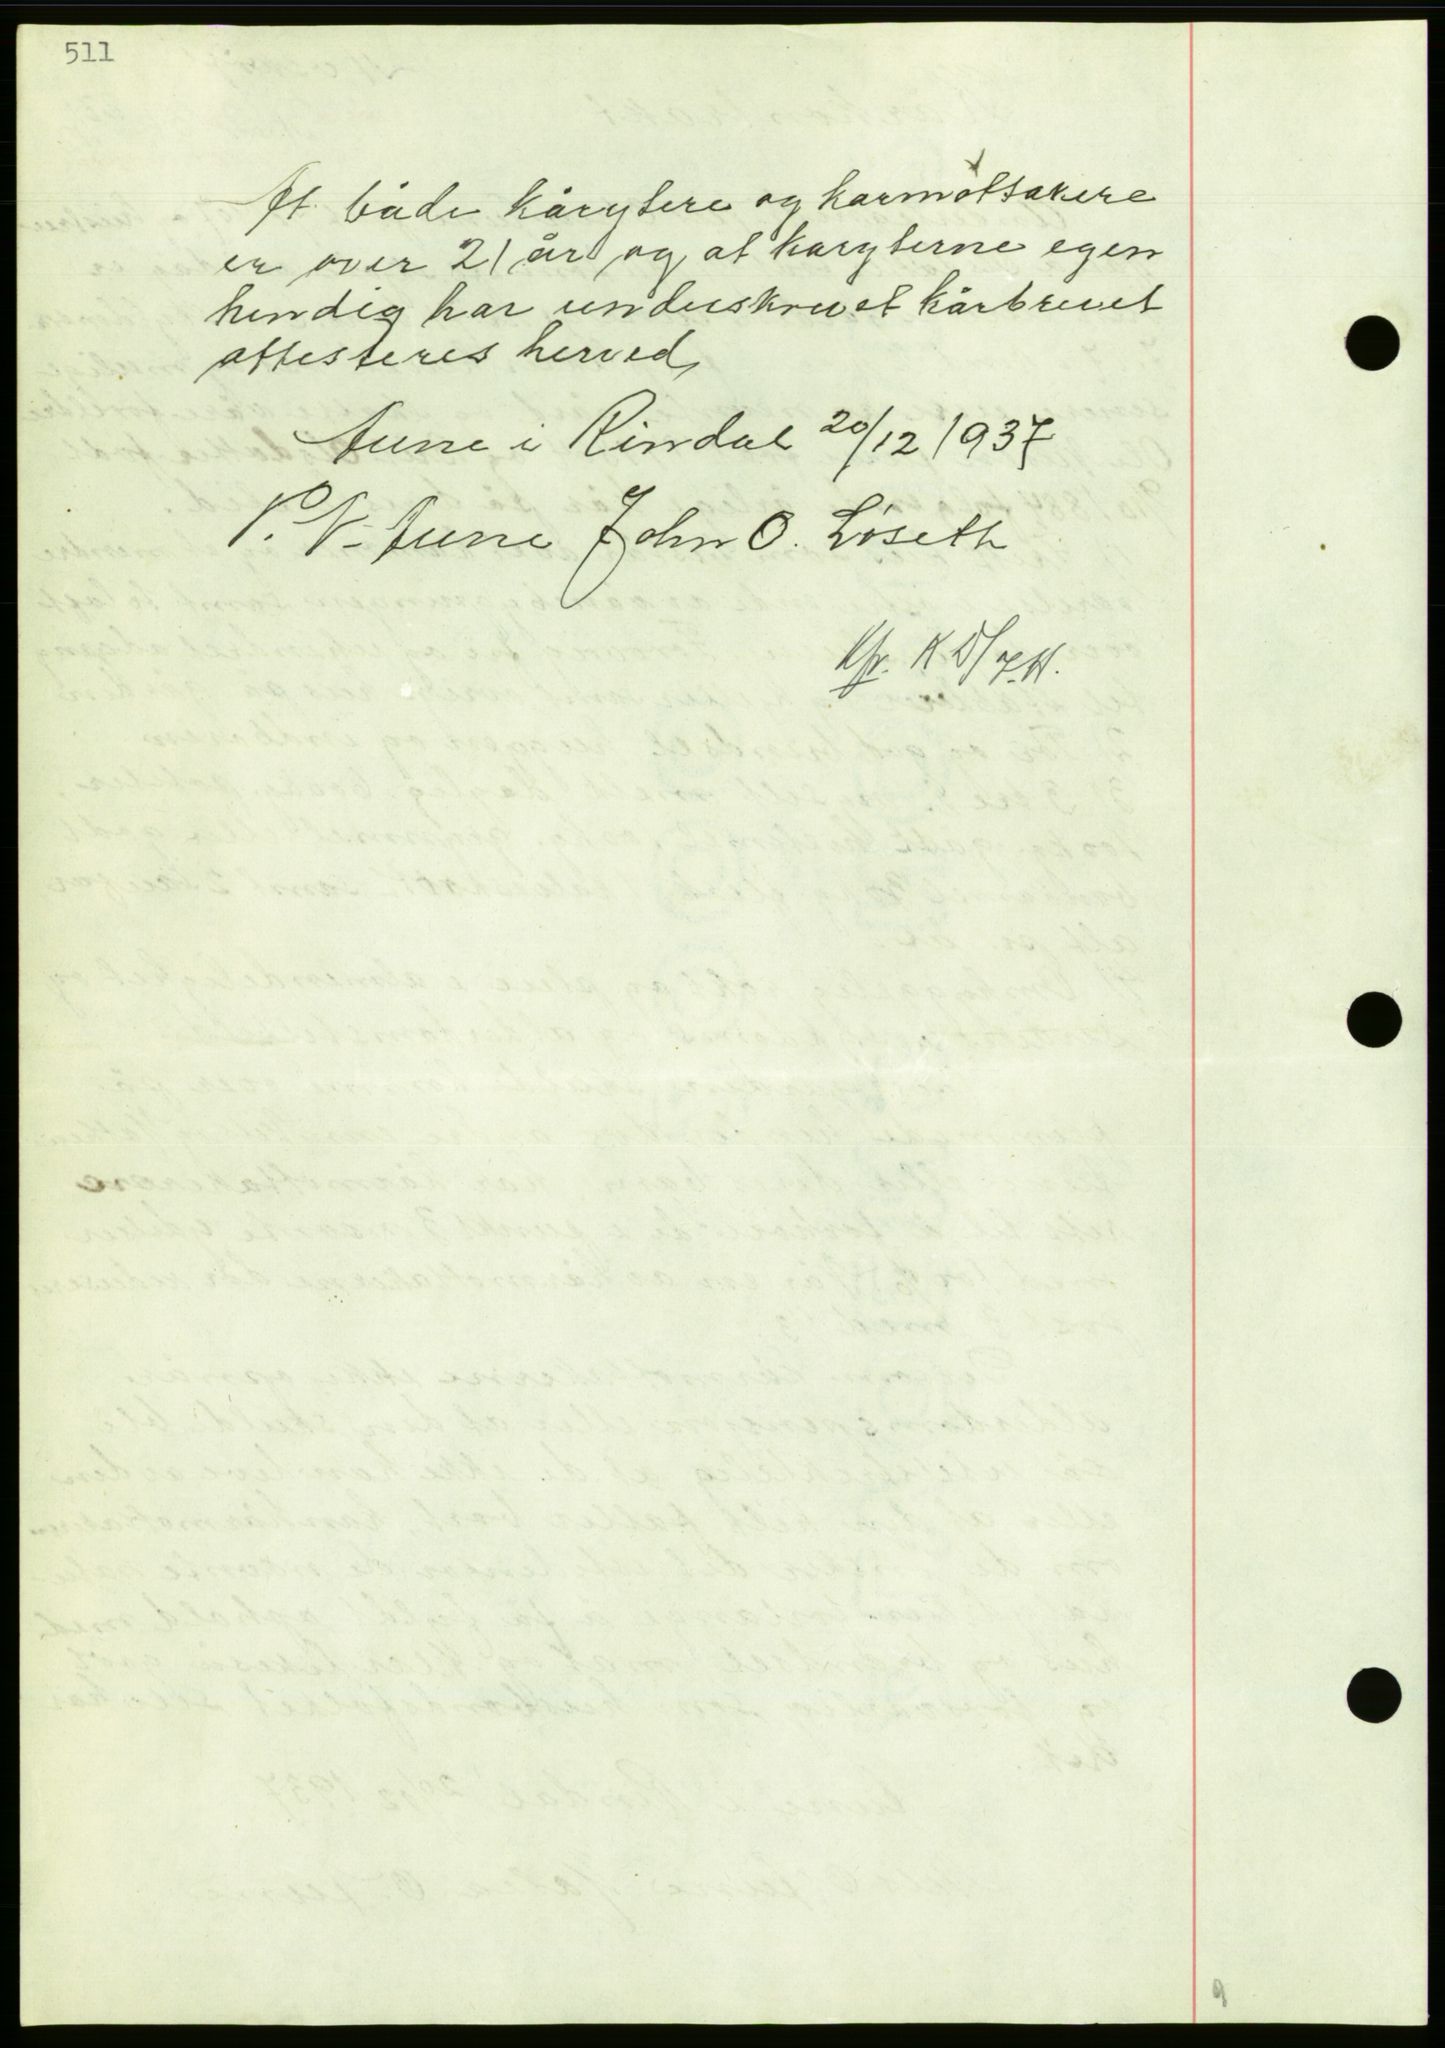 511
At både kårytere og karmottakere
er over 21 år og at karyterne egen
hendig har underskrevet kårbrevet
attesteres herved,
Aune i Rindal 20/12 1937
P. N. Aune John O. Löseth
Kfr.
9